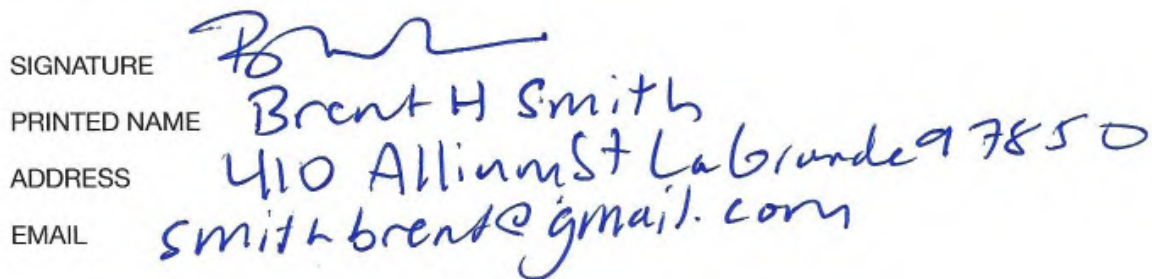 SIGNATURE
PRINTED NAME Brent H Smith
ADDRESS 410 Allium St La Grande 97850
EMAIL smithbrent@gmail.com